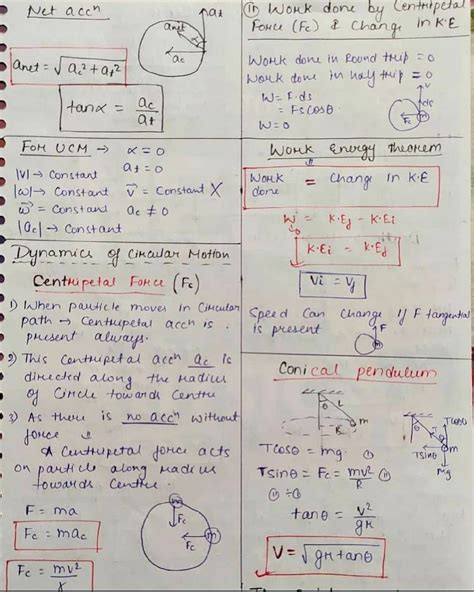 Net accⁿ
anet
at
ac
anet = √ac² + at²
tanα = ac/at
For UCM → α = 0
at = 0
|v| → Constant
|ω| → Constant v⃗ = Constant X
ω⃗ = Constant ac ≠ 0
|ac| → Constant
Dynamics of Circular Motion
Centripetal Force (Fc)
1) When particle moves in circular
path → Centripetal accⁿ is
present always.
2) This centripetal accⁿ ac is
directed along the radius
of Circle towards Centre
3) As there is no accⁿ without
force ⇓
A Centripetal force acts
on particle along radius
towards centre.
F = ma
Fc = mac
Fc = mv²/r
m
Fc
Fc
m
(ii) Work done by Centripetal
Force (Fc) & Change in K.E
Work done in Round trip = 0
Work done in half trip = 0
W = F.ds
= FScosθ
W = 0
v
ds
Fc
m
Work Energy theorem
Work done = Change in K.E
W = K.Ef - K.Ei
0
K.Ei = K.Ef
Vi = Vf
Speed can change if F tangential
is present
F
Conical pendulum
θ
L
m
R
θ
T
TCosθ
TSinθ
M
mg
Tcosθ = mg
Tsinθ = Fc = mv²/R (ii)
(ii) ÷ (i)
tanθ = v²/gr
V = √gr tanθ